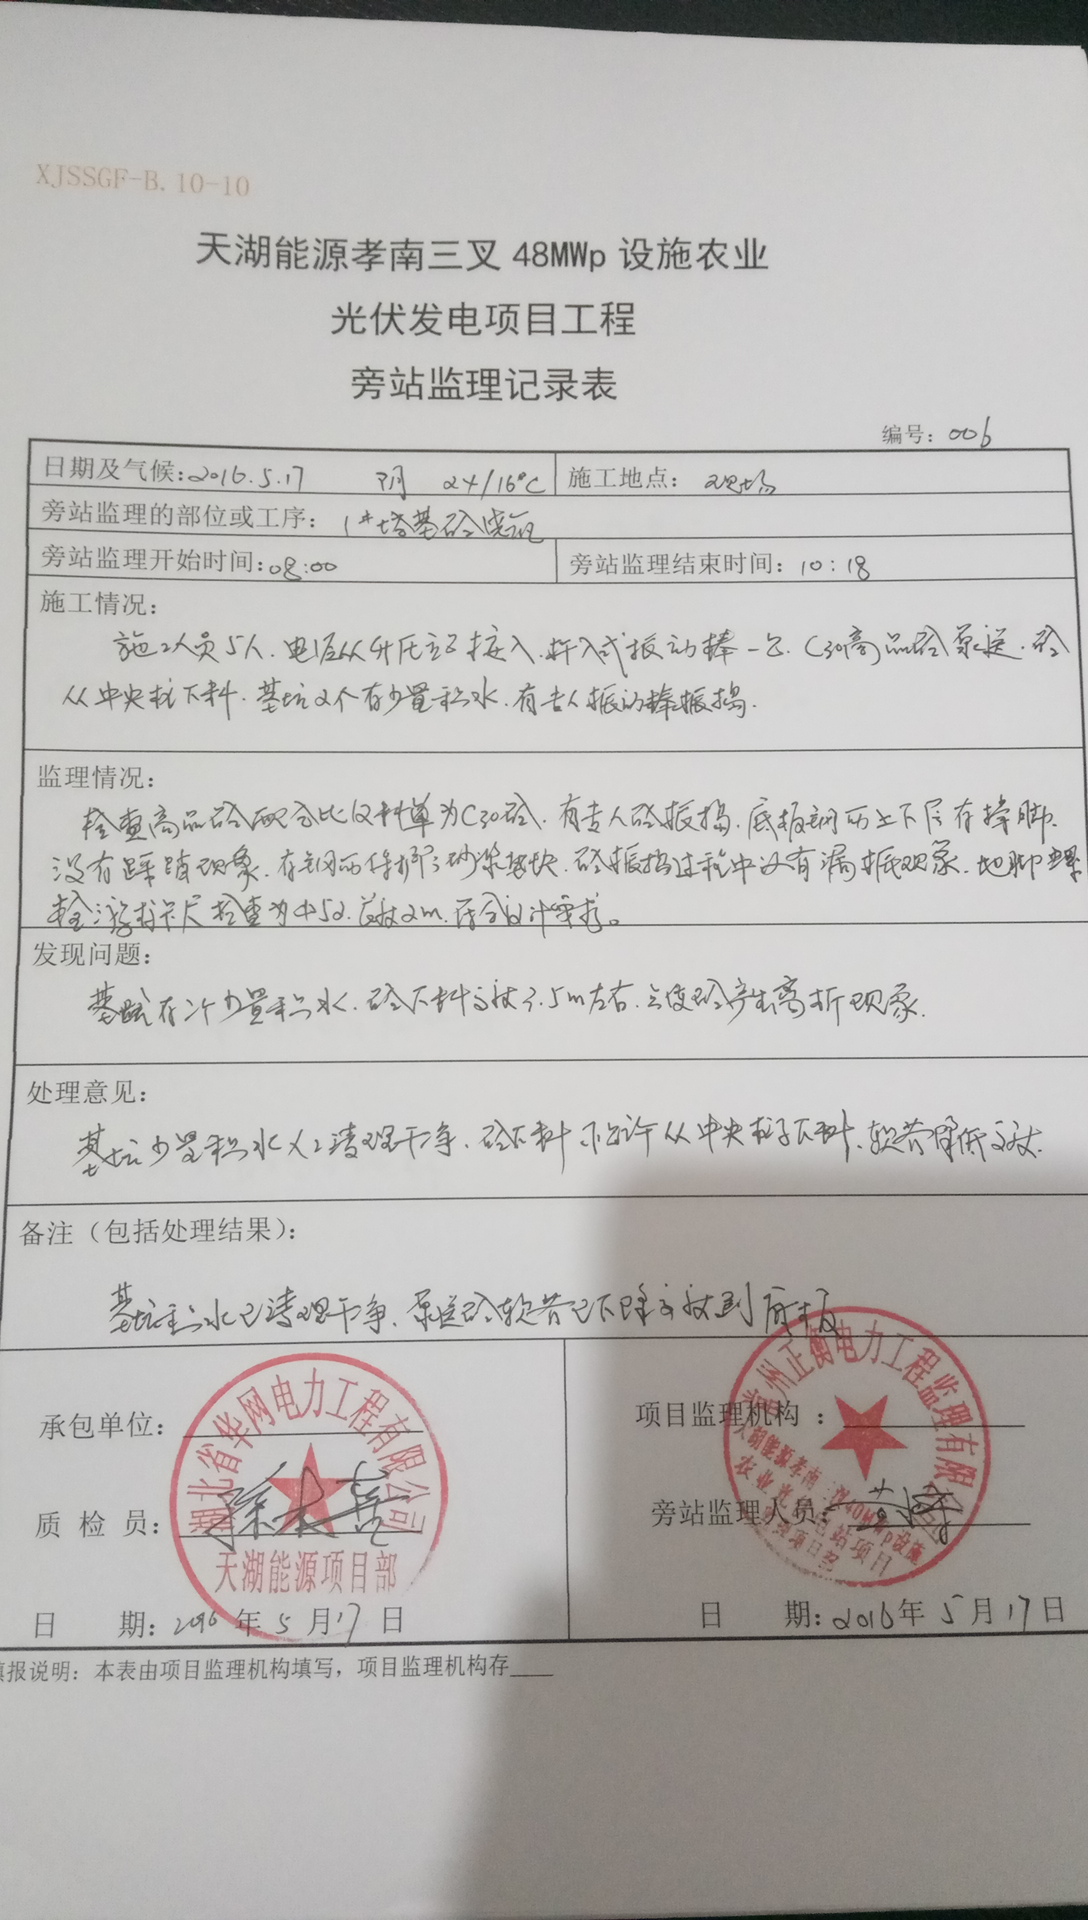 XJSSGF-B.10-10
天湖能源孝南三叉 48MWp 设施农业
光伏发电项目工程
旁站监理记录表
编号：006
日期及气候：2016.5.17 阴 24/16℃ 施工地点：现场
旁站监理的部位或工序：1#塔基砼浇筑
旁站监理开始时间：08:00 旁站监理结束时间：10:18
施工情况：
施工人员5人、电源从升压站接入、杆入式振动棒一台、C30商品砼泵送、砼
从中央柱下料、基坑2个有少量积水、有专人振动棒振捣.
监理情况：
检查商品砼配合比及料单为C30砼、有专人砼振捣、底板钢筋上下层有撑脚、
没有踩踏现象、有钢筋保护砂浆垫块、砼振捣过程中没有漏振现象、地脚螺
栓游标卡尺检查为φ52、2m、符合设计要求。
发现问题：
基坑有少量积水、砼下料3.5m左右、会使砼产生离析现象.
处理意见：
基坑少量积水人工清理干净、砼下料不允许从中央柱子下料、软管降低.
备注（包括处理结果）：
基坑积水已清理干净、泵送砼软管已下降到底板
承包单位： 项目监理机构：
湖北省华网电力工程有限公司
天湖能源项目部
州正衡电力工程监理有限公司
天湖能源孝南
农业光伏电站项目
质检员： 旁站监理人员：
日 期：2016年5月17日 日 期：2016年5月17日
填报说明：本表由项目监理机构填写，项目监理机构存____